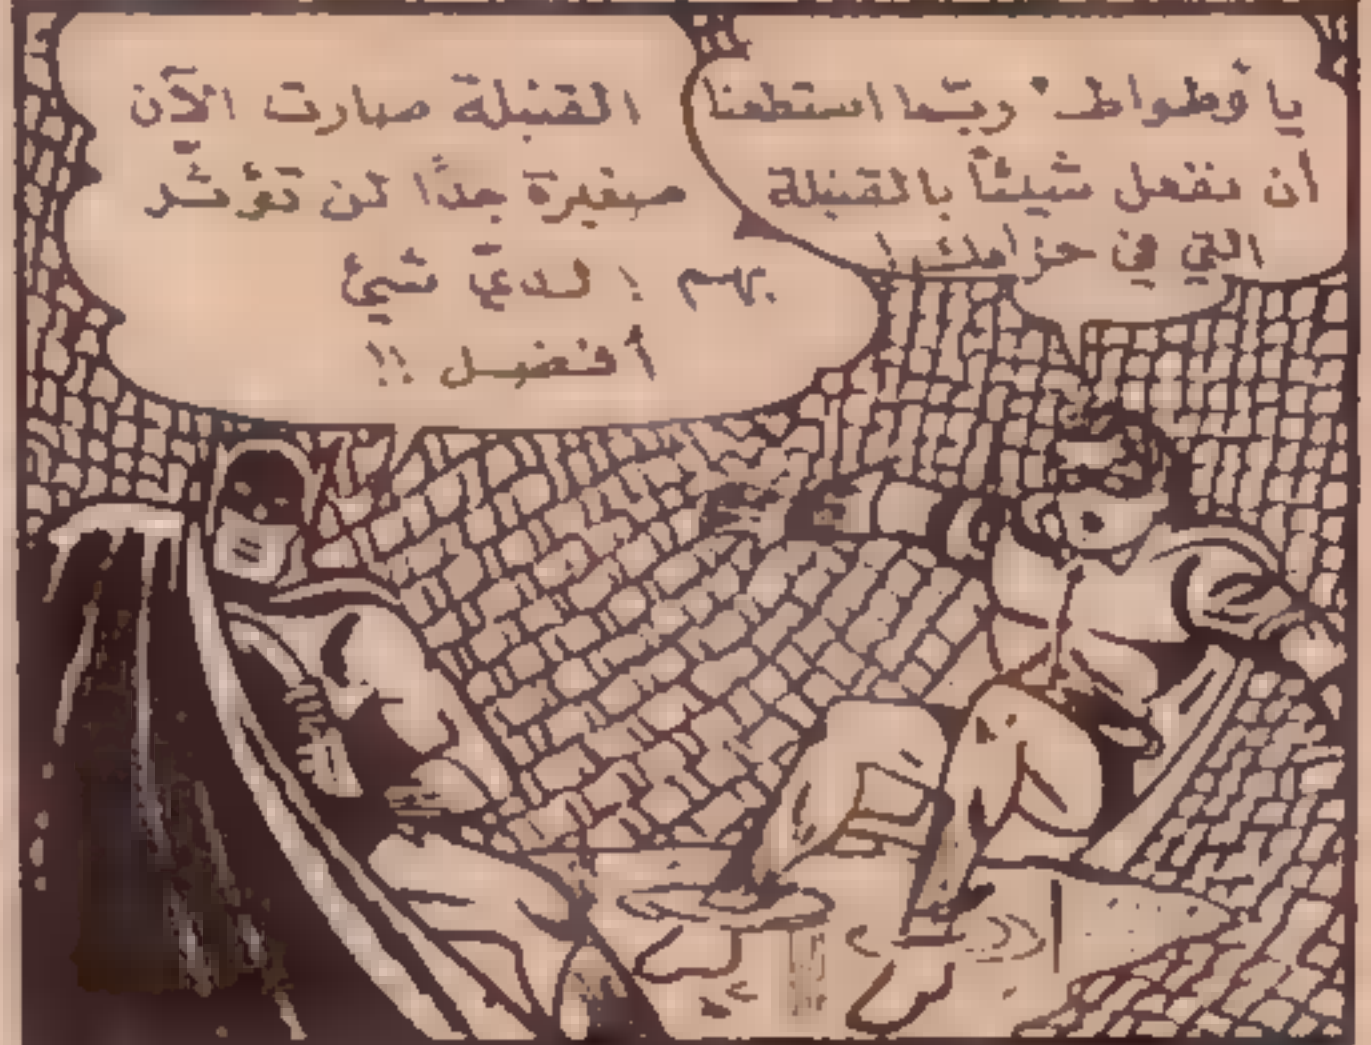 يا وطواط ، ربّما استطعنا
أن نفعل شيئاً بالقنبلة
التي في حزامك !
القنبلة صارت الآن
صغيرة جدًا لن تؤثّر
بهم ! لديّ شيئ
أفضل !!